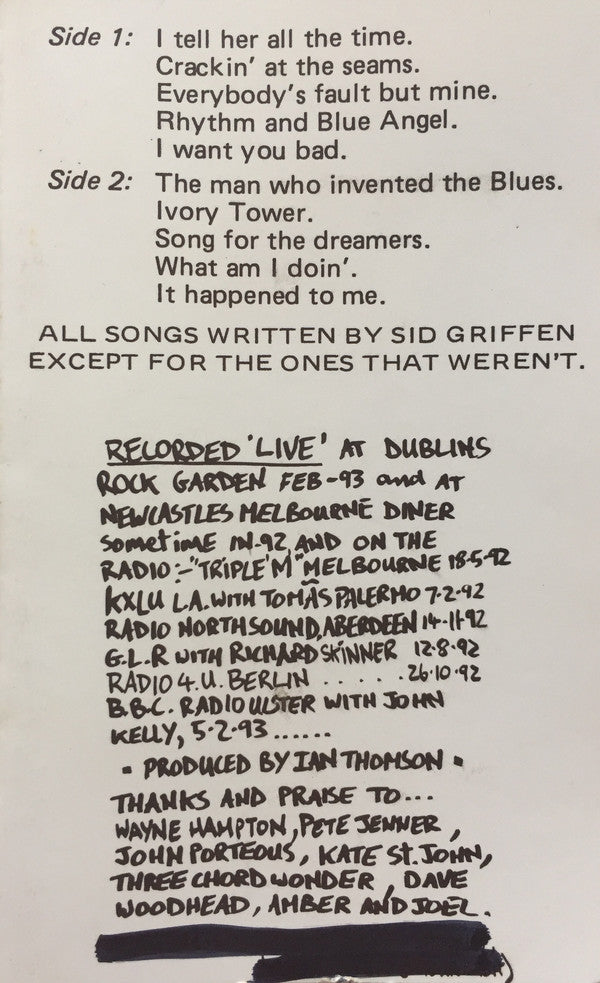 Side 1: I tell her all the time.
Crackin' at the seams.
Everybody's fault but mine.
Rhythm and Blue Angel.
I want you bad.
Side 2: The man who invented the Blues.
Ivory Tower.
Song for the dreamers.
What am I doin'.
It happened to me.
ALL SONGS WRITTEN BY SID GRIFFEN
EXCEPT FOR THE ONES THAT WEREN'T.
RECORDED 'LIVE' AT DUBLINS
ROCK GARDEN FEB-93 and AT
NEWCASTLES MELBOURNE DINER
Sometime IN-92 AND ON THE
RADIO:- "TRIPLE 'M'" MELBOURNE 18-5-92
KXLU L.A. WITH TOMÁS PALERMO 7-2-92
RADIO NORTHSOUND, ABERDEEN 14-11-92
G.L.R WITH RICHARD SKINNER 12-8-92
RADIO 4.U. BERLIN . . . . . 26-10-92
B.B.C. RADIO ULSTER WITH JOHN
KELLY, 5-2-93......
- PRODUCED BY IAN THOMSON -
THANKS AND PRAISE TO...
WAYNE HAMPTON, PETE JENNER,
JOHN PORTEOUS, KATE St. JOHN,
THREE CHORD WONDER, DAVE
WOODHEAD, AMBER AND JOEL.